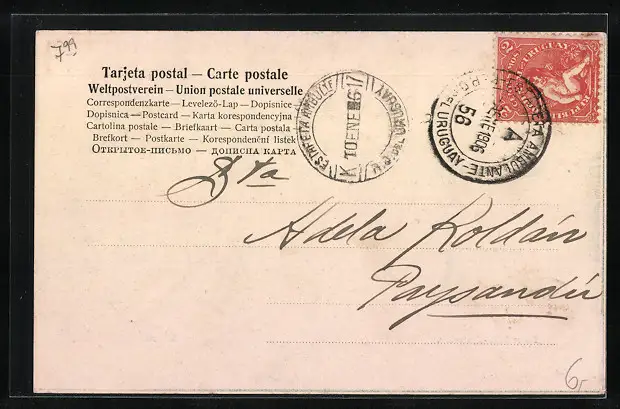 7⁹⁹
Tarjeta postal — Carte postale
Weltpostverein — Union postale universelle
Correspondenzkarte — Levelező-Lap — Dopisnice
Dopisnica — Postcard — Karta korespondencyjna
Cartolina postale — Briefkaart — Carta postala
Brefkort — Postkarte — Korespondenční lístek
ОТКРЫТОЕ-ПИСЬМО — ДОПИСНА КАРТА
ESTAFETA AMBULTE
K 10 ENE 06 17
URUGUAY
ESTAFETA AMBULANTE
ENE 1906
A
56
DEL URUGUAY
Sta
Adela Roldán
Paysandú
6,-